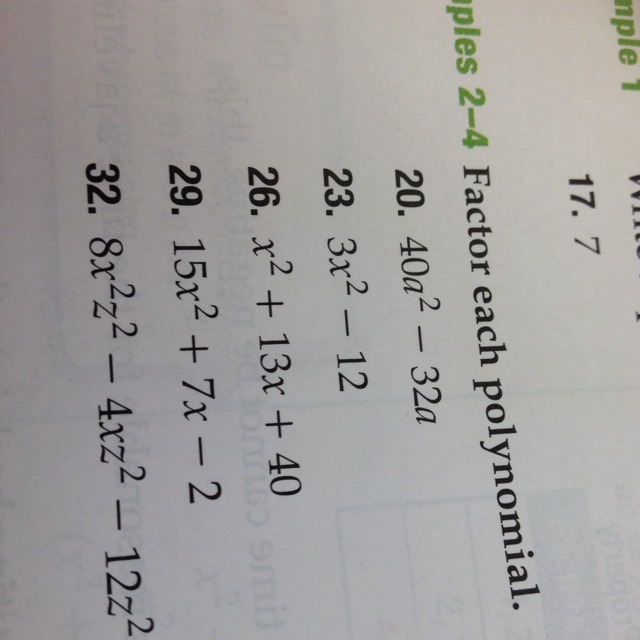 17. 7
2–4 Factor each polynomial.
20. 40a² − 32a
23. 3x² − 12
26. x² + 13x + 40
29. 15x² + 7x − 2
32. 8x²z² − 4xz² − 12z²